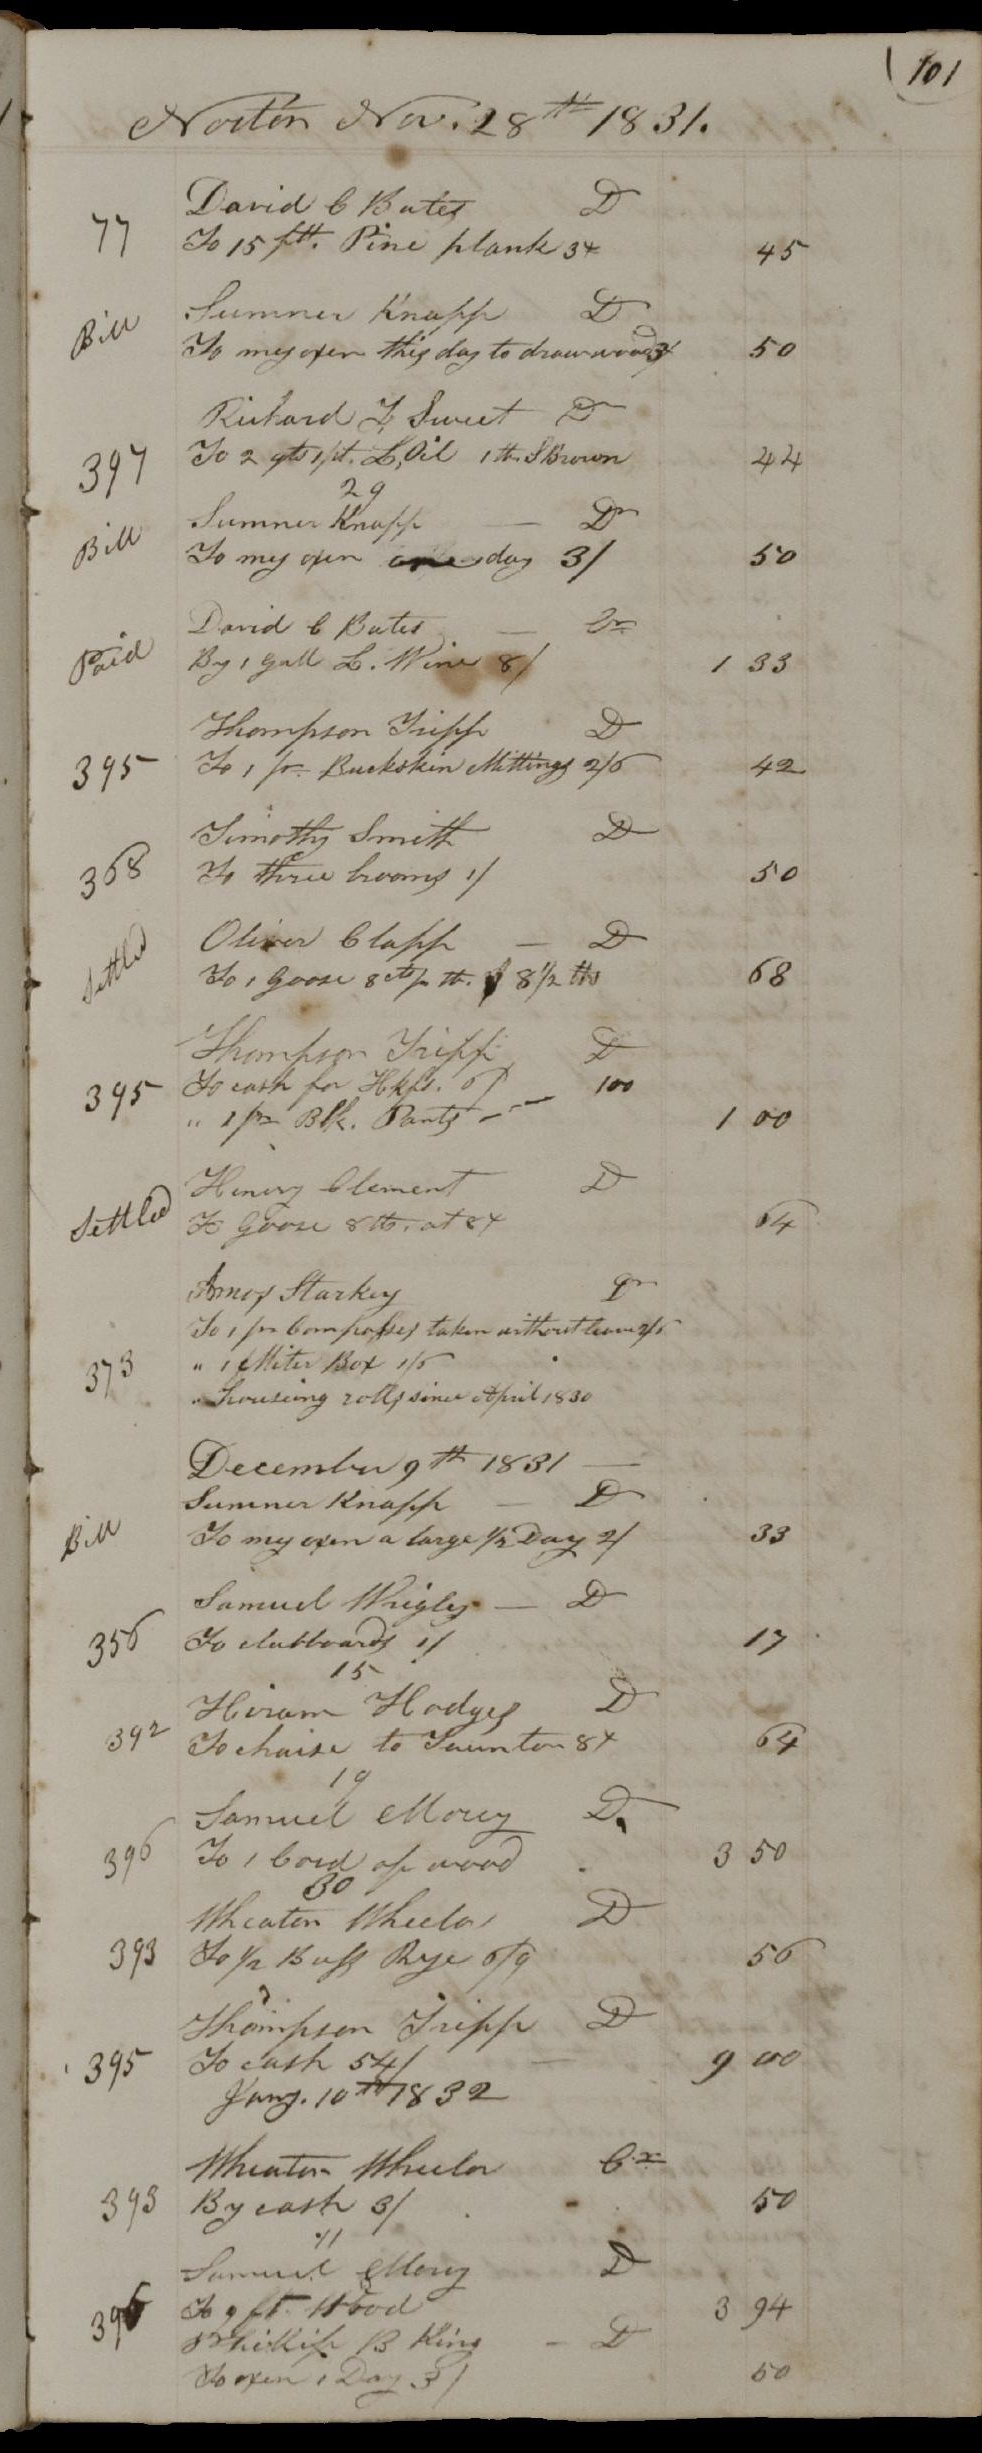 101
Norton Nov. 28th 1831.
David C Bates D
77 To 15 ftt. Pine plank 3x 45
Sumner Knapp D
Bill To my oxen this day to draw wood 3/ 50
Richard Sweet D
397 To 2 qts 1 pt. L, Oil 1 th. S Brown 44
29
Sumner Knapp — Dr
Bill To my oxen one day 3/ 50
David C Bates — Cr
Paid By 1 Gall L. Wine 8/ 1 33
Thompson Tripp D
395 To 1 pr. Buckskin Mittings 2/6 42
Timothy Smith D
368 To three brooms 1/ 50
Oliver Clapp — D
Settld To 1 Goose 8 cts pr th. 8 1/2 ths 68
Thompson Tripp D
395 To cash for Hkfs. of 100
" 1 pr Blk. Pants 1 00
Henry Clement D
Settled To Goose 8 th. at 8x 64
Amos Starkey Dr
To 1 pr Compasses taken without leave 2/6
373 " 1 Miter Box 1/6
" houseing rolls since April 1830
December 9th 1831 —
Sumner Knapp — D
Bill To my oxen a large 1/2 Day 2/ 33
Samuel Wrigley — D
356 To clabboards 1/ 17
15
Hiram Hodges D
392 To chaise to Taunton 8x 64
19
Samuel Morey D.
396 To 1 Cord of wood 3 50
30
Wheaton Wheelor D
393 To 1/2 Bush Rye 6/9 56
Thompson Tripp D
395 To cash 54/ — 9 00
Jany. 10th 1832
Wheaton Wheelor Cr
393 By cash 3/ 50
11
Samuel Morey D
396 To 9 ft. Wood 3 94
Phillip B King — D
To oxen 1 Day 3/ 50